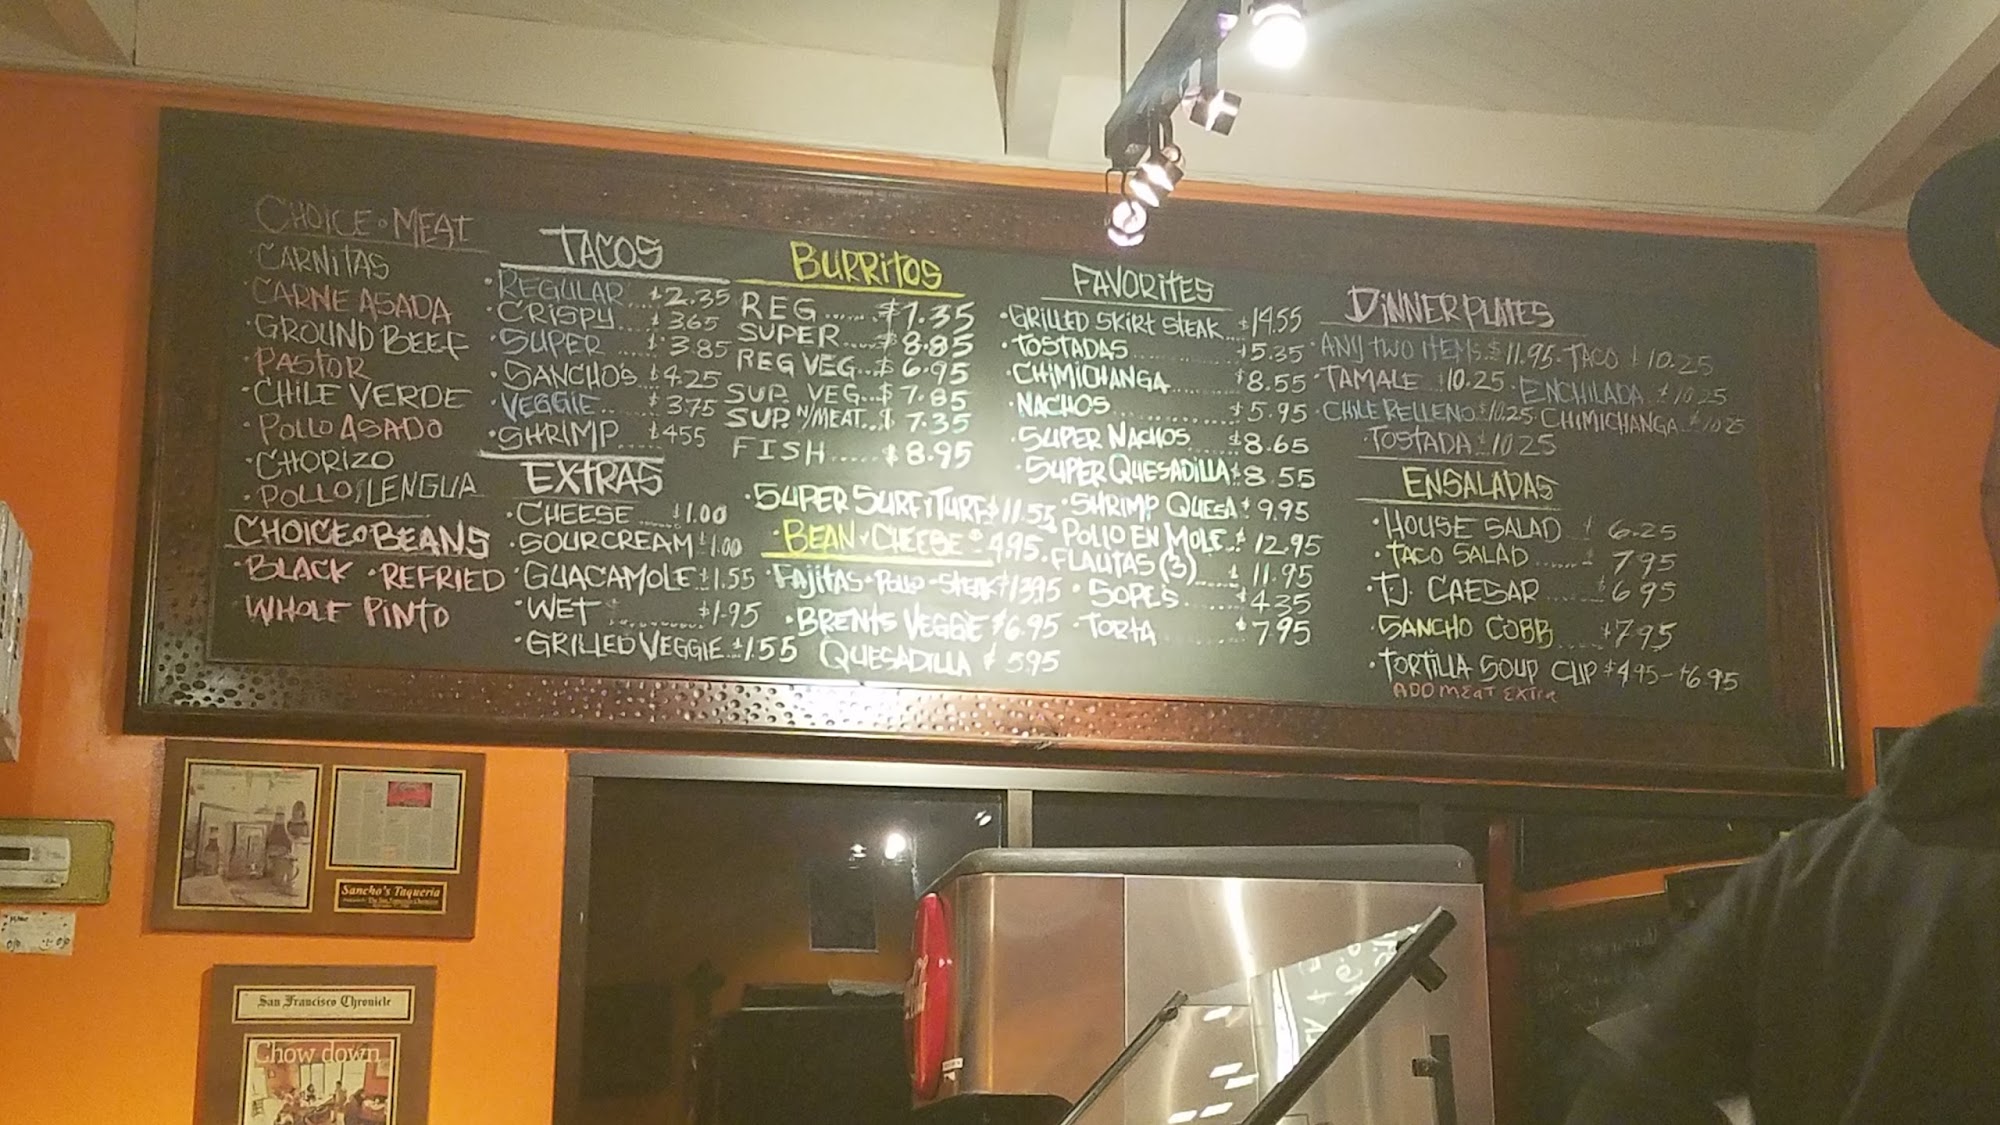 CHOICE o MEAT
· CARNITAS
CARNE ASADA
· GROUND BEEF
· PASTOR
· CHILE VERDE
· POLLO ASADO
· CHORIZO
· POLLO/LENGUA
CHOICE o BEANS
· BLACK · REFRIED
· WHOLE PINTO
TACOS
· REGULAR $2.35
· CRISPY $365
· SUPER $3.85
· SANCHO'S $4.25
· VEGGIE $375
· SHRIMP $455
EXTRAS
· CHEESE $1.00
· SOUR CREAM $1.00
· GUACAMOLE $1.55
· WET $1.95
· GRILLED VEGGIE $1.55
BURRITOS
REG $7.35
SUPER $8.85
REG VEG $6.95
SUP. VEG $7.85
SUP. N/MEAT $7.35
FISH $8.95
· SUPER SURF Y TURF $11.55
· BEAN Y CHEESE $4.95
· FAJITAS · POLLO · STEAK $13.95
· BRENTS VEGGIE $6.95
QUESADILLA $595
FAVORITES
· GRILLED SKIRT STEAK $14.55
· TOSTADAS $5.35
· CHIMICHANGA $8.55
· NACHOS $5.95
· SUPER NACHOS $8.65
· SUPER QUESADILLA $8.55
· SHRIMP QUESA $9.95
POLLO EN MOLE $12.95
· FLAUTAS (3) $11.95
· SOPES $4.35
· TORTA $7.95
DINNER PLATES
· ANY TWO ITEMS $11.95 · TACO $10.25
· TAMALE $10.25 · ENCHILADA $10.25
· CHILE RELLENO $10.25 · CHIMICHANGA $10.25
· TOSTADA $10.25
ENSALADAS
· HOUSE SALAD $6.25
· TACO SALAD $795
· T.J. CAESAR $695
· SANCHO COBB $7.95
· TORTILLA SOUP CUP $4.95 - $6.95
ADD MEAT EXTRA
Sancho's Taqueria
San Francisco Chronicle
Chow down